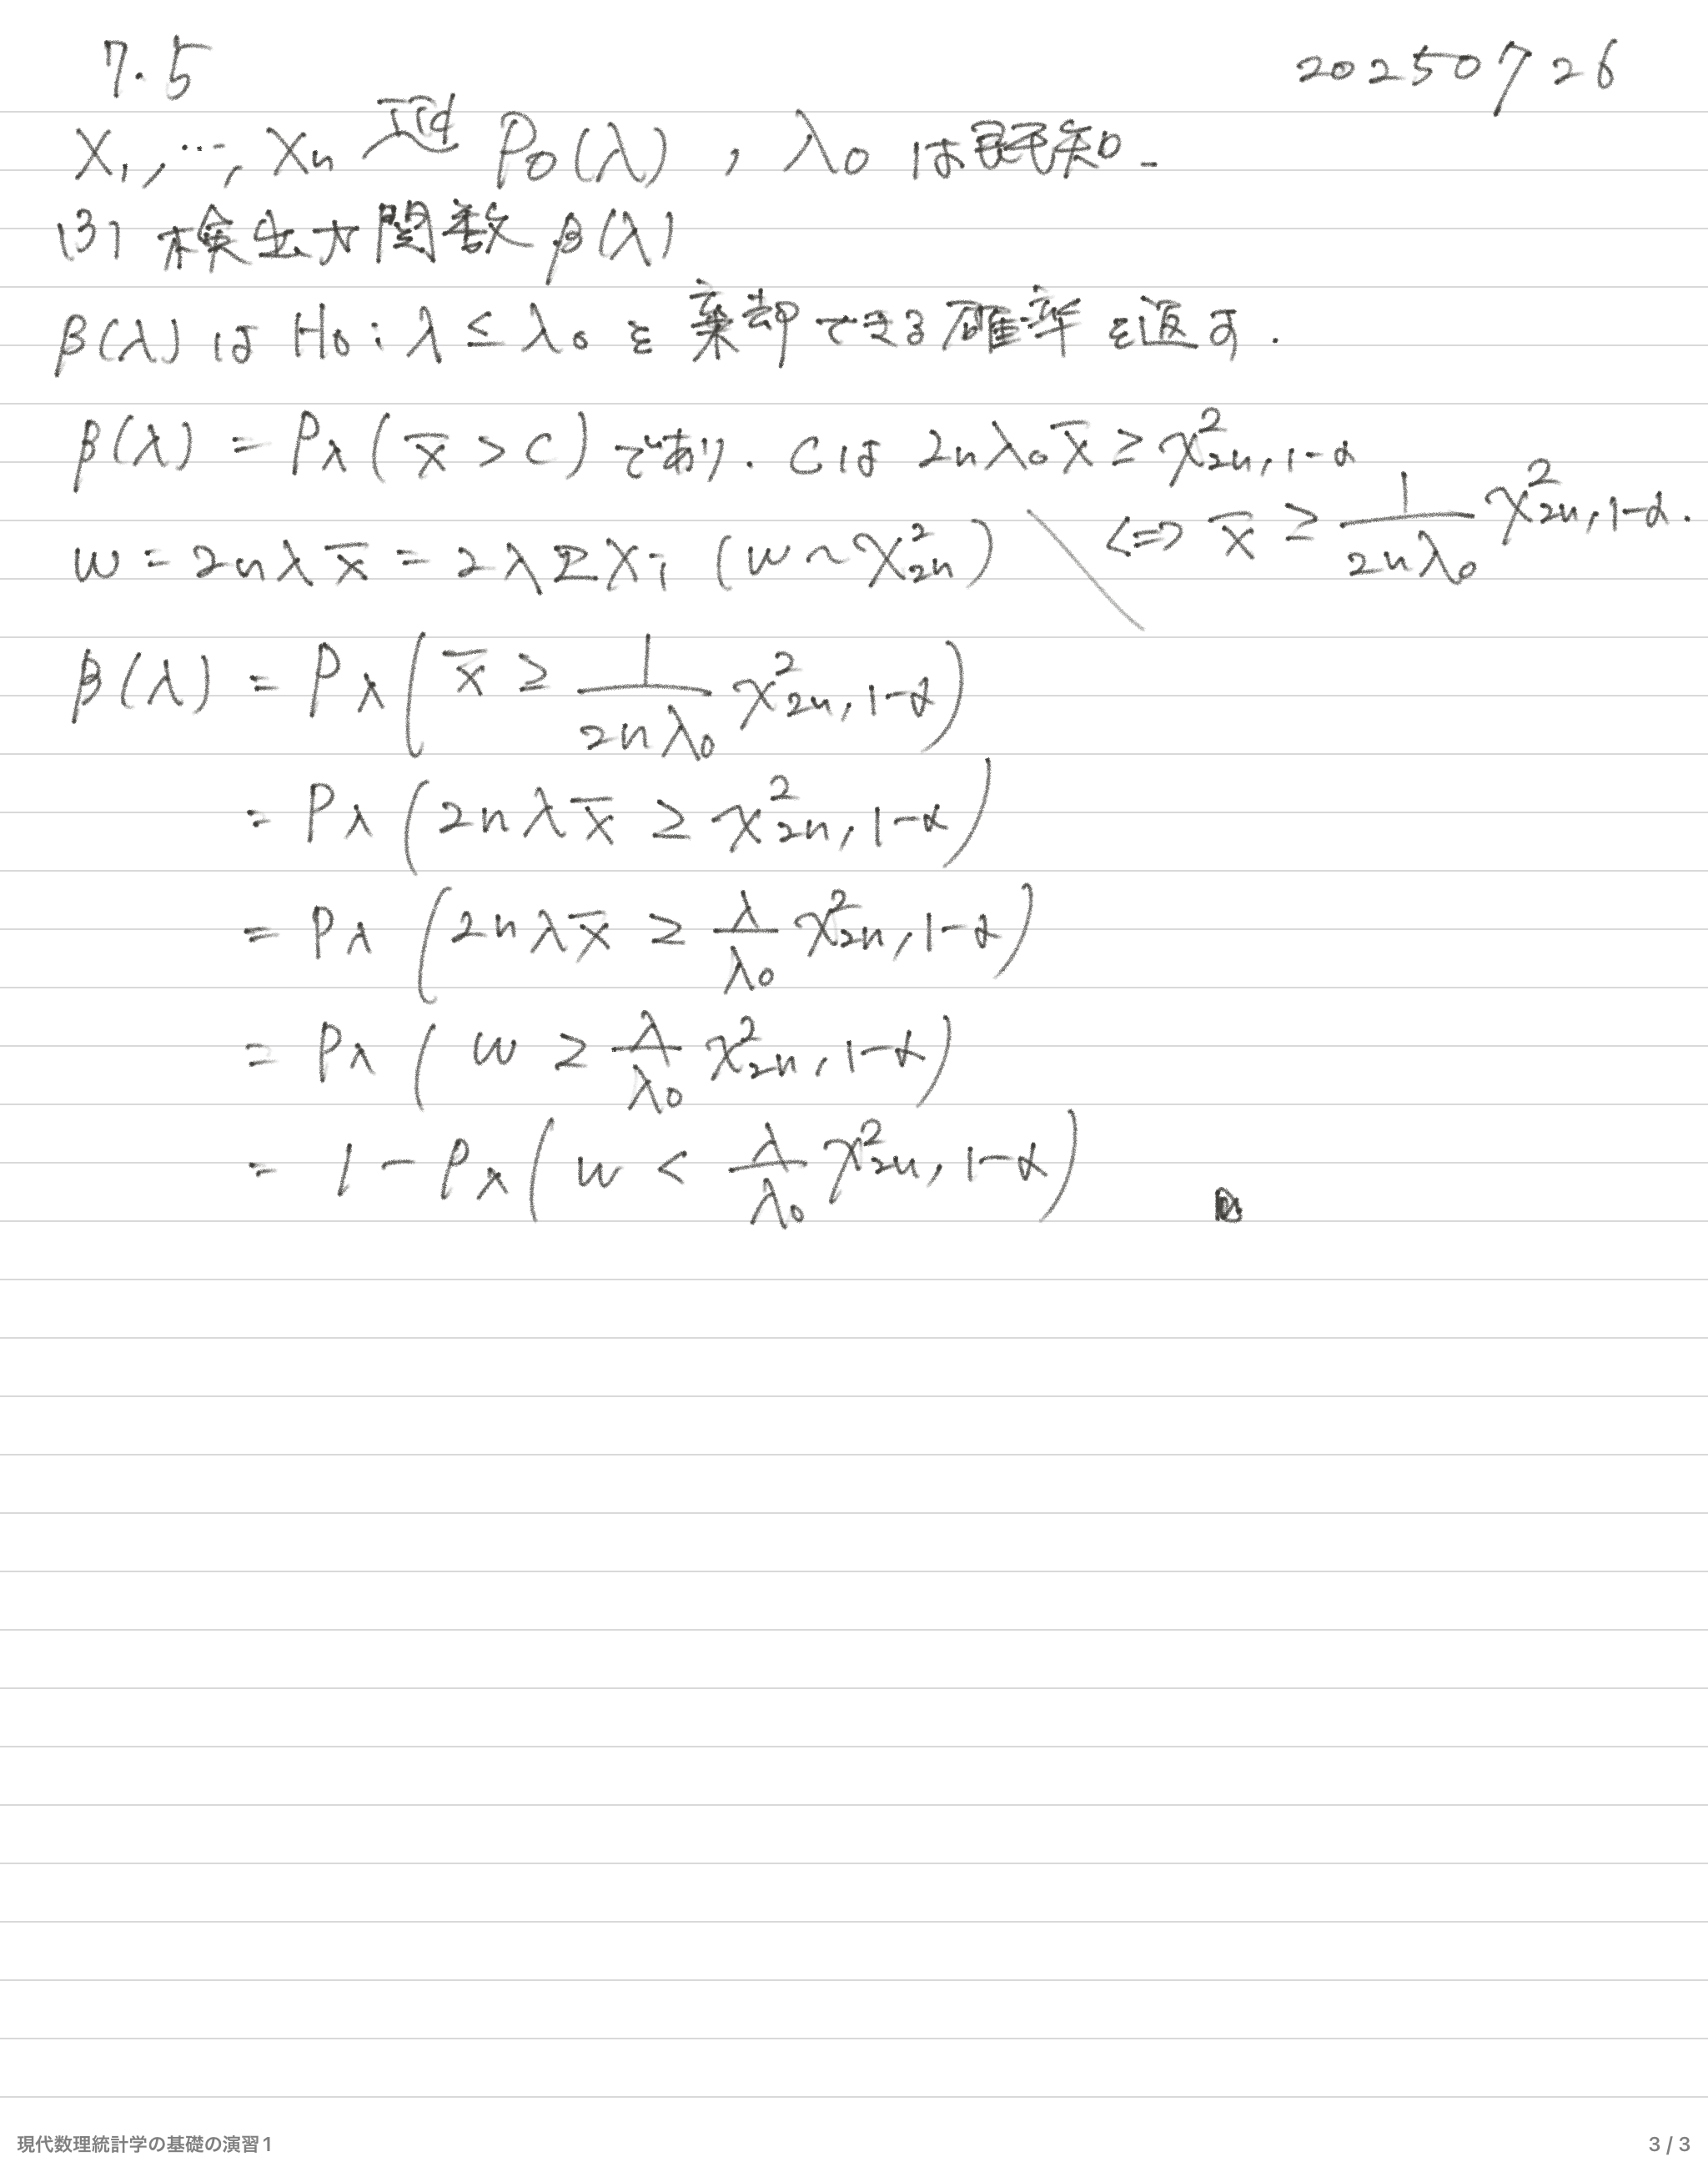 7.5
20250726
X₁, …, Xn iid Po(λ) , λ₀ は既知.
(3) 検出力関数 β(λ)
β(λ) は H₀ : λ ≤ λ₀ を棄却できる確率を返す.
β(λ) = Pλ ( x̄ > C ) であり. C は 2nλ₀x̄ ≥ χ²₂ₙ, 1-α
⇔ x̄ ≥ 1/(2nλ₀) χ²₂ₙ, 1-α.
W = 2nλx̄ = 2λΣXi (W ~ χ²₂ₙ)
β(λ) = Pλ ( x̄ ≥ 1/(2nλ₀) χ²₂ₙ, 1-α )
= Pλ ( 2nλx̄ ≥ χ²₂ₙ, 1-α )
= Pλ ( 2nλx̄ ≥ λ/λ₀ χ²₂ₙ, 1-α )
= Pλ ( W ≥ λ/λ₀ χ²₂ₙ, 1-α )
= 1 - Pλ ( W < λ/λ₀ χ²₂ₙ, 1-α )
現代数理統計学の基礎の演習1
3 / 3